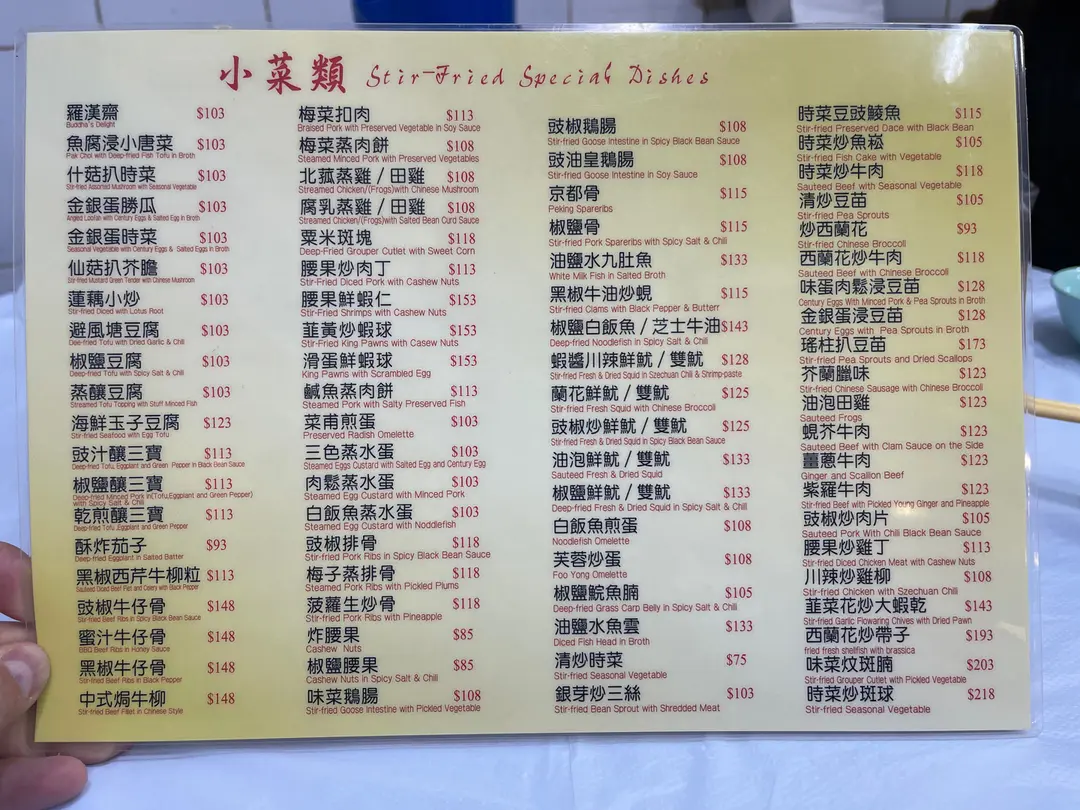 小菜類 Stir-Fried Special Dishes
羅漢齋 $103
Buddha's Delight
魚腐浸小唐菜 $103
Pak Choi with Deep-fried Fish Tofu in Broth
什菇扒時菜 $103
Stir-fried Assorted Mushroom with Seasonal Vegetable
金銀蛋勝瓜 $103
Angled Loofah with Century Eggs & Salted Egg in Broth
金銀蛋時菜 $103
Seasonal Vegetable with Century Eggs & Salted Eggs in Broth
仙菇扒芥膽 $103
Stir-fried Mustard Green Tender with Chinese Mushroom
蓮藕小炒 $103
Stir-fried Diced with Lotus Root
避風塘豆腐 $103
Dee-fried Tofu with Dried Garlic & Chili
椒鹽豆腐 $103
Deep-fried Tofu with Spicy Salt & Chili
蒸釀豆腐 $103
Streamed Tofu Topping with Stuff Minced Fish
海鮮玉子豆腐 $123
Stir-fried Seafood with Egg Tofu
豉汁釀三寶 $113
Deep-fried Tofu, Eggplant and Green Pepper in Black Bean Sauce
椒鹽釀三寶 $113
Deep-fried Minced Pork in(Tofu,Eggplant and Green Pepper)
with Spicy Salt & Chili
乾煎釀三寶 $113
Deep-fried Tofu ,Eggplant and Green Pepper
酥炸茄子 $93
Deep-fried Eggplant in Salted Batter
黑椒西芹牛柳粒 $113
Sauteed Diced Beef Filet and Celery with Black Pepper
豉椒牛仔骨 $148
Stir-fried Beef Ribs in Spicy Black Bean Sauce
蜜汁牛仔骨 $148
BBQ Beef Ribs in Honey Sauce
黑椒牛仔骨 $148
Stir-fried Beef Ribs in Black Pepper
中式焗牛柳 $148
Stir-fried Beef Fillet in Chinese Style
梅菜扣肉 $113
Braised Pork with Preserved Vegetable in Soy Sauce
梅菜蒸肉餅 $108
Steamed Minced Pork with Preserved Vegetables
北菰蒸雞 / 田雞 $108
Streamed Chicken/(Frogs)with Chinese Mushroom
腐乳蒸雞 / 田雞 $108
Streamed Chicken/(Frogs)with Salted Bean Curd Sauce
粟米斑塊 $118
Deep-Fried Grouper Cutlet with Sweet Corn
腰果炒肉丁 $113
Stir-Fried Diced Pork with Cashew Nuts
腰果鮮蝦仁 $153
Stir-Fried Shrimps with Cashew Nuts
韮黃炒蝦球 $153
Stir-Fried King Pawns with Casew Nuts
滑蛋鮮蝦球 $153
King Pawns with Scrambled Egg
鹹魚蒸肉餅 $113
Steamed Pork with Salty Preserved Fish
菜甫煎蛋 $103
Preserved Radish Omelette
三色蒸水蛋 $103
Steamed Eggs Custard with Salted Egg and Century Egg
肉鬆蒸水蛋 $103
Steamed Egg Custard with Minced Pork
白飯魚蒸水蛋 $103
Steamed Egg Custard with Noddlefish
豉椒排骨 $118
Stir-fried Pork Ribs in Spicy Black Bean Sauce
梅子蒸排骨 $118
Steamed Pork Ribs with Pickled Plums
菠蘿生炒骨 $118
Stir-fried Pork Ribs with Pineapple
炸腰果 $85
Cashew Nuts
椒鹽腰果 $85
Cashew Nuts in Spicy Salt & Chili
味菜鵝腸 $108
Stir-fried Goose Intestine with Pickled Vegetable
豉椒鵝腸 $108
Stir-fried Goose Intestine in Spicy Black Bean Sauce
豉油皇鵝腸 $108
Stir-fried Goose Intestine in Soy Sauce
京都骨 $115
Peking Spareribs
椒鹽骨 $115
Stir-fried Pork Spareribs with Spicy Salt & Chili
油鹽水九肚魚 $133
White Milk Fish in Salted Broth
黑椒牛油炒蜆 $115
Stir-fried Clams with Black Pepper & Butterr
椒鹽白飯魚 / 芝士牛油 $143
Deep-fried Noodlefish in Spicy Salt & Chili
蝦醬川辣鮮魷 / 雙魷 $128
Stir-fried Fresh & Dried Squid in Szechuan Chili & Shrimp-paste
蘭花鮮魷 / 雙魷 $125
Stir-fried Fresh Squid with Chinese Broccoli
豉椒炒鮮魷 / 雙魷 $125
Stir-fried Fresh & Dried Squid in Spicy Black Bean Sauce
油泡鮮魷 / 雙魷 $133
Sauteed Fresh & Dried Squid
椒鹽鮮魷 / 雙魷 $133
Deep-fried Fresh & Dried Squid in Spicy Salt & Chili
白飯魚煎蛋 $108
Noodlefish Omelette
芙蓉炒蛋 $108
Foo Yong Omelette
椒鹽鯇魚腩 $105
Deep-fried Grass Carp Belly in Spicy Salt & Chili
油鹽水魚雲 $133
Diced Fish Head in Broth
清炒時菜 $75
Stir-fried Seasonal Vegetable
銀芽炒三絲 $103
Stir-fried Bean Sprout with Shredded Meat
時菜豆豉鯪魚 $115
Stir-fried Preserved Dace with Black Bean
時菜炒魚崧 $105
Stir-fried Fish Cake with Vegetable
時菜炒牛肉 $118
Sauteed Beef with Seasonal Vegetable
清炒豆苗 $105
Stir-fried Pea Sprouts
炒西蘭花 $93
Stir-fried Chinese Broccoli
西蘭花炒牛肉 $118
Sauteed Beef with Chinese Broccoli
味蛋肉鬆浸豆苗 $128
Century Eggs With Minced Pork & Pea Sprouts in Broth
金銀蛋浸豆苗 $128
Century Eggs with Pea Sprouts in Broth
瑤柱扒豆苗 $173
Stir-fried Pea Sprouts and Dried Scallops
芥蘭臘味 $123
Stir-fried Chinese Sausage with Chinese Broccoli
油泡田雞 $123
Sauteed Frogs
蜆芥牛肉 $123
Sauteed Beef with Clam Sauce on the Side
薑蔥牛肉 $123
Ginger and Scallion Beef
紫羅牛肉 $123
Stir-fried Beef with Pickled Young Ginger and Pineapple
豉椒炒肉片 $105
Sauteed Pork With Chili Black Bean Sauce
腰果炒雞丁 $113
Stir-fried Diced Chicken Meat with Cashew Nuts
川辣炒雞柳 $108
Stir-fried Chicken with Szechuan Chili
韮菜花炒大蝦乾 $143
Stir-fried Garlic Flowaring Chives with Dried Pawn
西蘭花炒帶子 $193
fried fresh shellfish with brassica
味菜炆斑腩 $203
Stir-fried Grouper Cutlet with Pickled Vegetable
時菜炒斑球 $218
Stir-fried Seasonal Vegetable